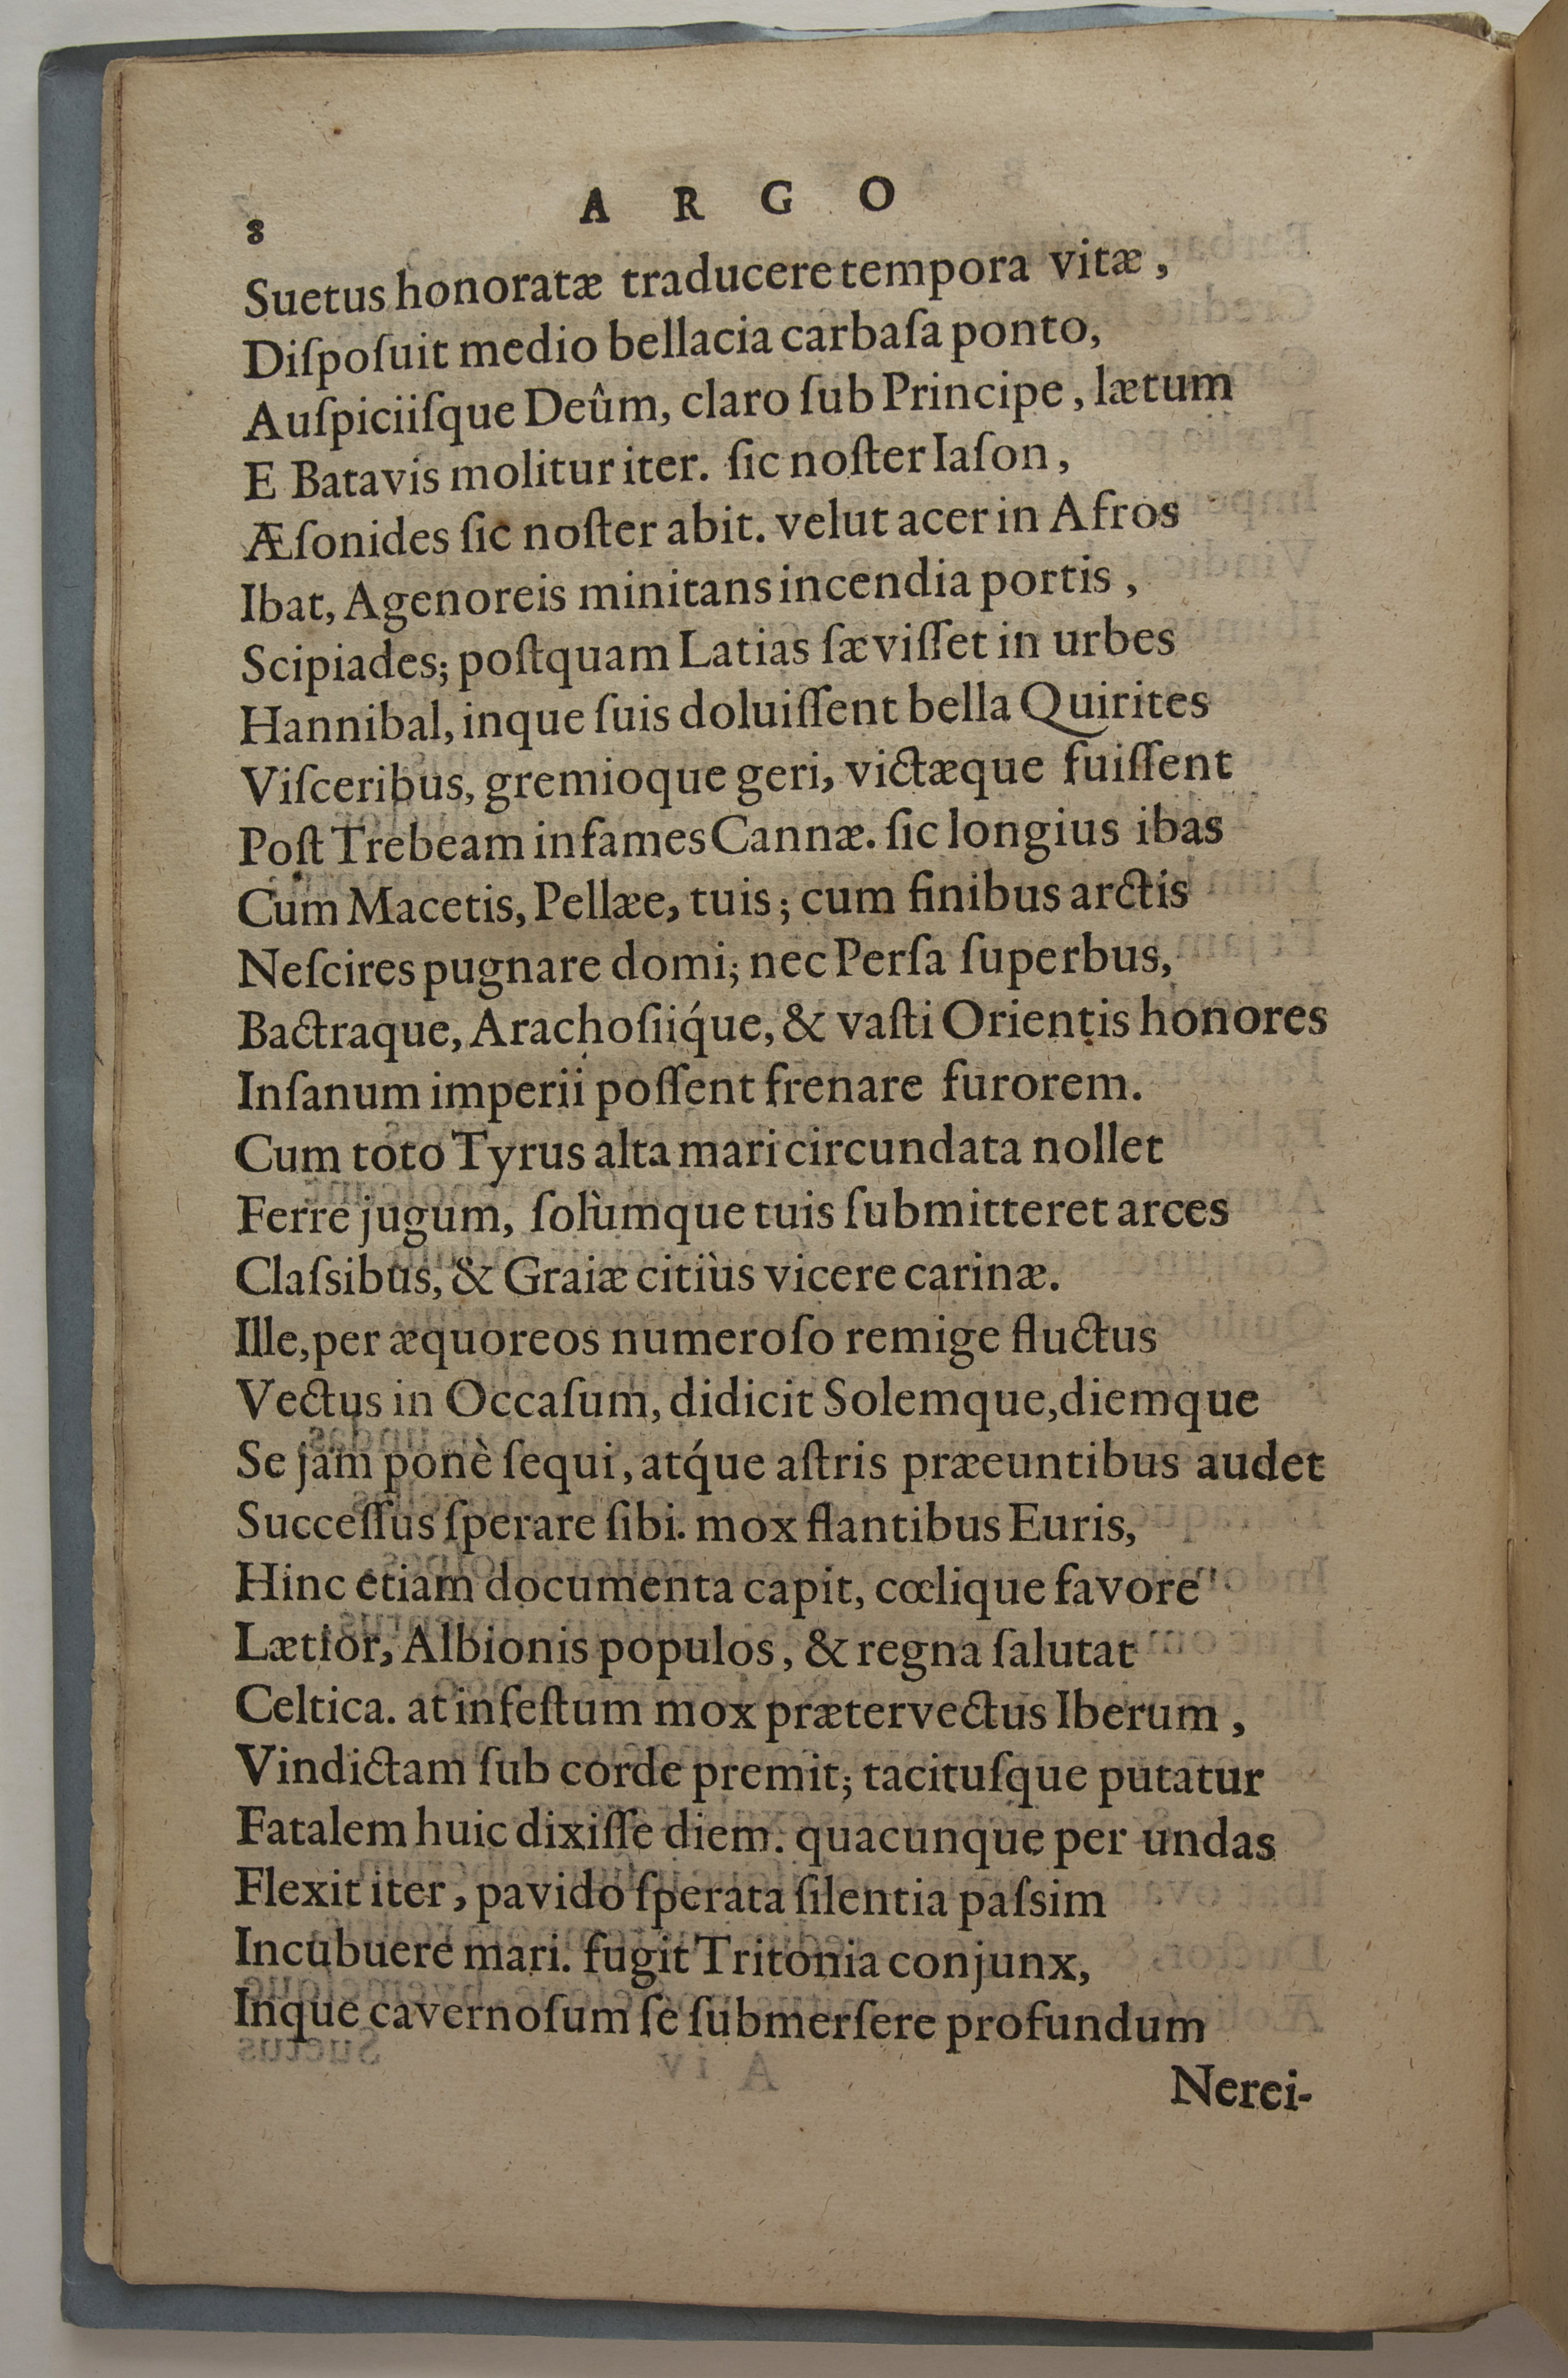 8 A R G O
Suetus honoratæ traducere tempora vitæ,
Diſpoſuit medio bellacia carbaſa ponto,
Auſpiciiſque Deûm, claro ſub Principe, lætum
E Batavis molitur iter. ſic noſter Iaſon,
Æſonides ſic noſter abit. velut acer in Afros
Ibat, Agenoreis minitans incendia portis,
Scipiades; poſtquam Latias ſæviſſet in urbes
Hannibal, inque ſuis doluiſſent bella Quirites
Viſceribus, gremioque geri, victæque fuiſſent
Poſt Trebeam infames Cannæ. ſic longius ibas
Cum Macetis, Pellæe, tuis; cum finibus arctis
Neſcires pugnare domi; nec Perſa ſuperbus,
Bactraque, Arachoſiiq́ue, & vaſti Orientis honores
Inſanum imperii poſſent frenare furorem.
Cum toto Tyrus alta mari circundata nollet
Ferre jugum, ſolùmque tuis ſubmitteret arces
Claſsibus, & Graiæ citiùs vicere carinæ.
Ille, per æquoreos numeroſo remige fluctus
Vectus in Occaſum, didicit Solemque, diemque
Se jam ponè ſequi, atq́ue aſtris præeuntibus audet
Succeſſus ſperare ſibi. mox flantibus Euris,
Hinc etiam documenta capit, cœlique favore
Lætior, Albionis populos, & regna ſalutat
Celtica. at infeſtum mox prætervectus Iberum,
Vindictam ſub corde premit; tacituſque putatur
Fatalem huic dixiſſe diem. quacunque per undas
Flexit iter, pavido ſperata ſilentia paſsim
Incubuere mari. fugit Tritonia conjunx,
Inque cavernoſum ſe ſubmerſere profundum
Nerei-